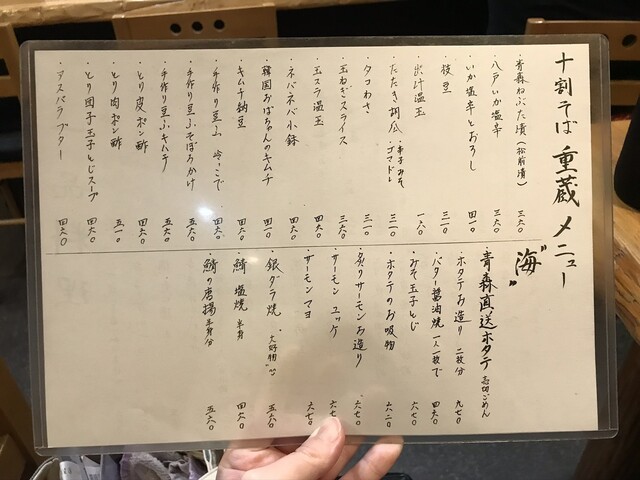 十割そば 重蔵 メニュー
・青森ねぶた漬(松前漬) 三六〇
・八戸いか塩辛 三六〇
・いか塩辛とおろし 四一〇
・枝豆 三一〇
・出汁温玉 一六〇
・たたき胡瓜 ・辛子みそ ・ゴマドレ 三一〇
・タコわさ 三一〇
・玉ねぎスライス 三六〇
・玉スラ温玉 四六〇
・ネバネバ小鉢 四六〇
・韓国おばちゃんのキムチ 四一〇
・キムチ納豆 四六〇
・手作り豆ふ 冷・こで 四六〇
・手作り豆ふそぼろかけ 五六〇
・手作り豆ふキムチ 五六〇
・とり皮ポン酢 四六〇
・とり肉ポン酢 五一〇
・とり団子玉子とじスープ 四六〇
・アスパラバター 四六〇
"海"
・青森直送ホタテ 売切ごめん
・ホタテお造り 二枚分 九七〇
・バター醤油焼 一人一枚で 四六〇
・みそ玉子とじ 六七〇
・ホタテのお吸物 六二〇
・炙りサーモンお造り 六七〇
・サーモンユッケ 六七〇
・サーモンマヨ 六七〇
・銀ダラ焼 ・大好物 五六〇
・鯖塩焼 半身 四六〇
・鯖の唐揚 半身分 五六〇